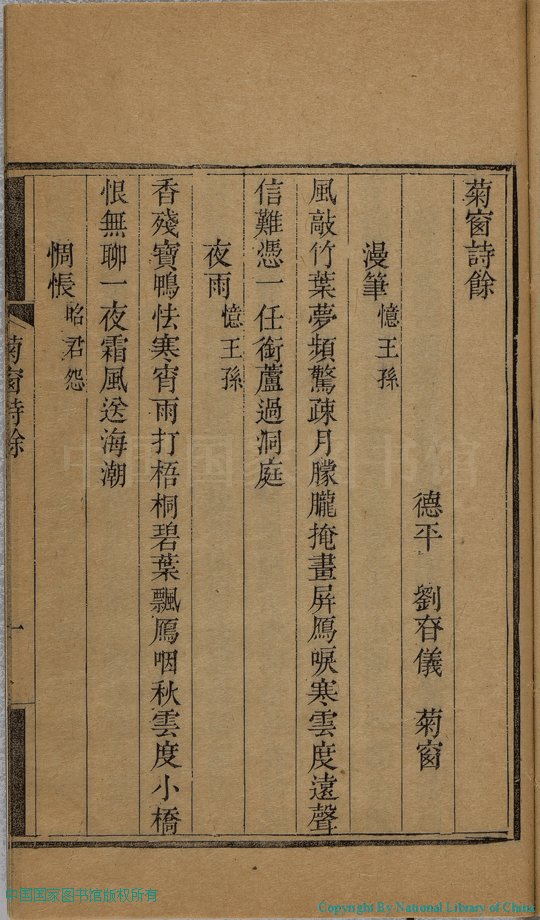 菊窗詩餘
德平　劉春儀　菊窗
漫筆憶王孫
風敲竹葉夢頻驚疎月朦朧掩畫屏鴈唳寒雲度遠聲
信難憑一任銜蘆過洞庭
夜雨憶王孫
香殘寶鴨怯寒宵雨打梧桐碧葉飄鴈咽秋雲度小橋
恨無聊一夜霜風送海潮
惆悵昭君怨
菊窗詩餘
一
中国国家图书馆版权所有
Copyright By National Library of China